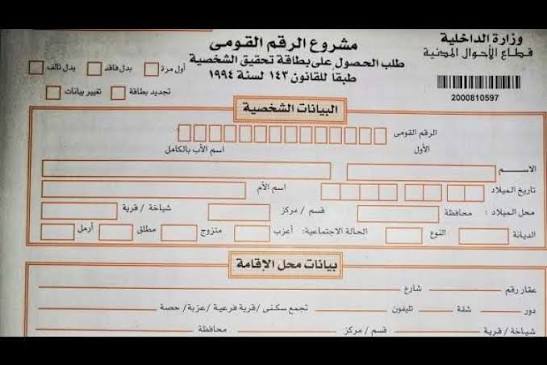 وزارة الداخلية
قطاع الأحوال المدنية
2000810597
مشروع الرقم القومى
طلب الحصول على بطاقة تحقيق الشخصية
طبقا للقانون ١٤٣ لسنة ١٩٩٤
أول مرة بدل فاقد بدل تالف
تجديد بطاقة تغيير بيانات
البيانات الشخصية
الرقم القومى
الأول اسم الأب بالكامل
الاسم
تاريخ الميلاد اسم الأم
محل الميلاد : محافظة قسم / مركز شياخة / قرية
الديانة النوع الحالة الاجتماعية: أعزب متزوج مطلق أرمل
بيانات محل الإقامة
عقار رقم شارع
دور شقة تليفون تجمع سكنى / قرية فرعية / عزبة / حصة
شياخة / قرية قسم / مركز محافظة